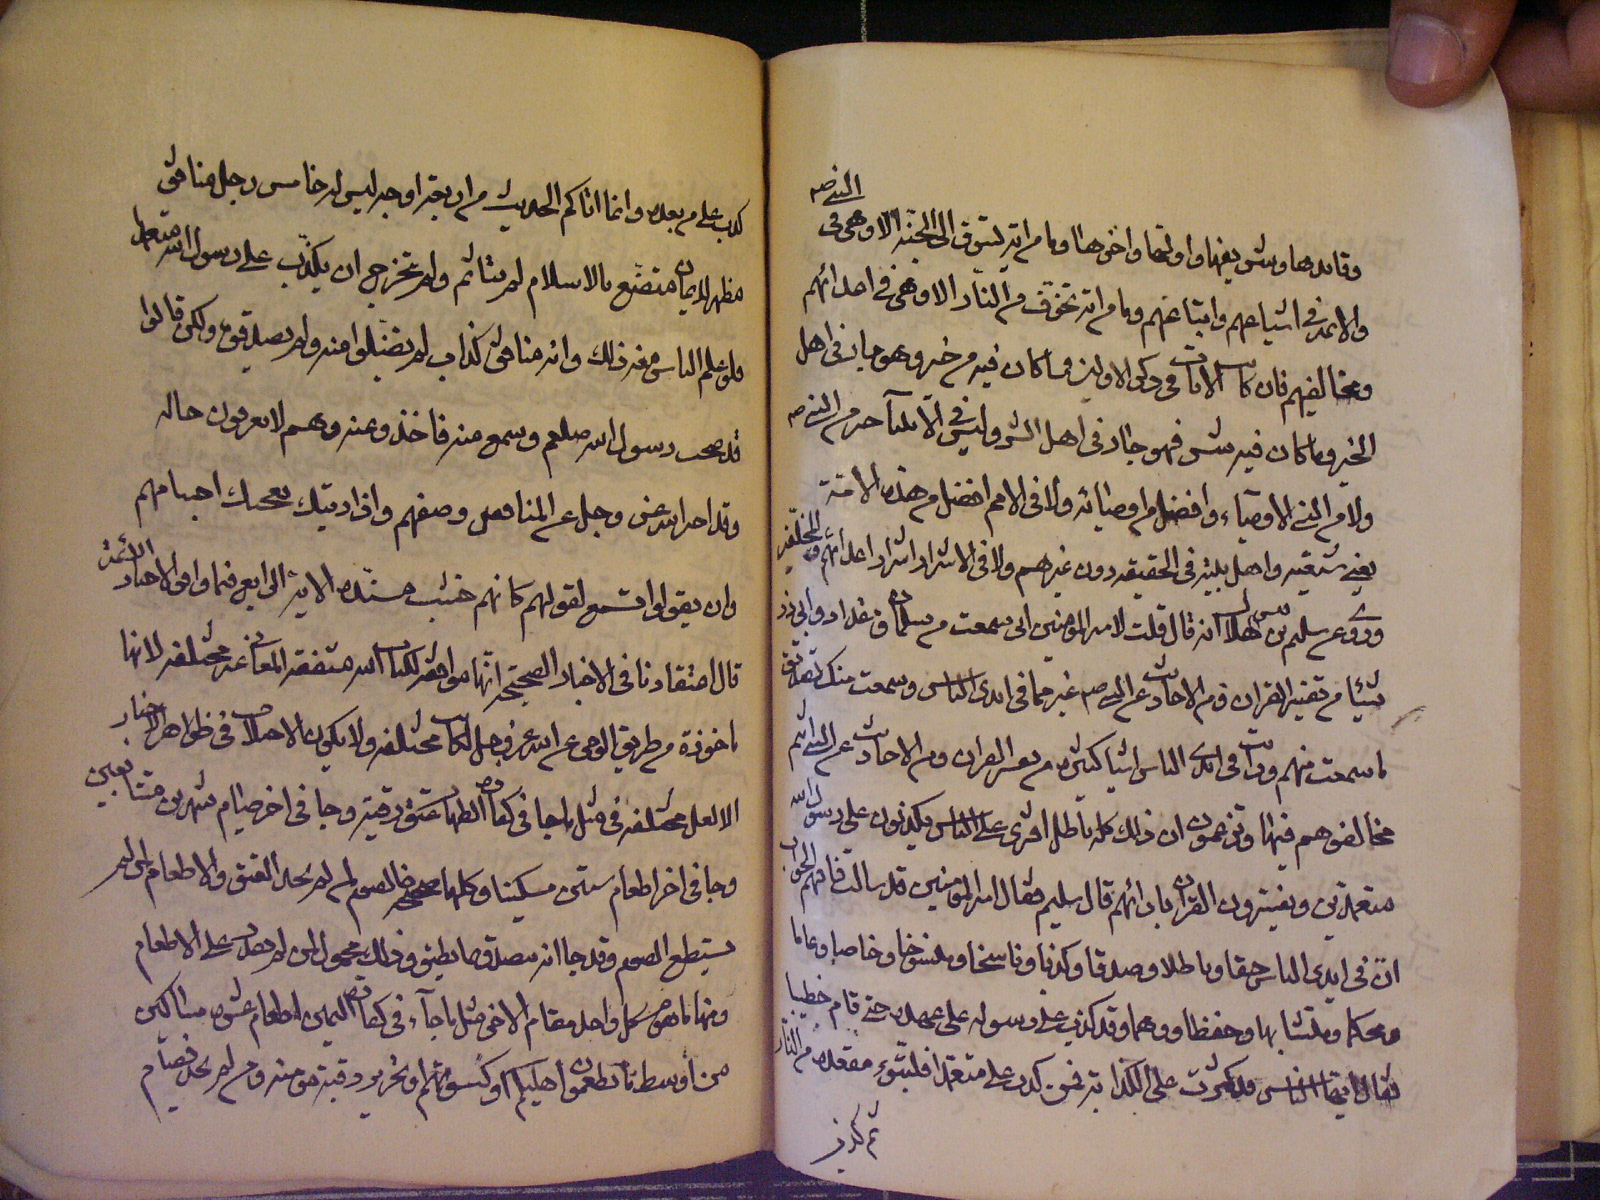 النبي ص
وقائدها وشريفها واولها واخرها وما من آية تسوق الى الجنة الا وهي في
والائمة في اشياعهم واتباعهم وما من اية تخوف من النار الا وهي في اعدائهم
ومخالفيهم فان كانت الآيات في ذكر الاولين فما كان فيه من خير وهو جار في اهل
الخير وما كان فيه من شر فهو جار في اهل الشر وليس في الانبياء خير من النبي ص
ولا من الاوصياء افضل من اوصيائه ولا في الامم افضل من هذه الامة
يعني شيعته واهل بيته في الحقيقة دون غيرهم ولا في الاشرار اشرار اعدائهم والمخالفين
وروي عن سليم بن قيس الهلالي انه قال قلت لامير المؤمنين اني سمعت من سلمان ومقداد وابي ذر
شيئا من تفسير القران ومن الاحاديث عن النبي ص غير ما في ايدي الناس وسمعت منك تصديق
ما سمعت منهم ورايت في ايدي الناس اشيا كثيرة من تفسير القران ومن الاحاديث عن النبي انتم
تخالفوهم فيها وتزعمون ان ذلك كله باطل افترى على الناس يكذبون على رسول الله
متعمدين ويفسرون القران بارائهم قال سليم فقال امير المؤمنين قد سالت فافهم الجواب
ان في ايدي الناس حقا وباطلا وصدقا وكذبا وناسخا ومنسوخا وخاصا وعاما
ومحكما ومتشابها وحفظا ووهما وقد كذب على رسوله على عهده حتى قام خطيبا
فقال ايها الناس قد كثرت علي الكذابة فمن كذب علي متعمدا فليتبوء مقعده من النار
ثم كذب
كذب علي من بعده وانما اتاكم الحديث من اربعة اوجه ليس له خامس رجل منافق
مظهر الايمان متصنع بالاسلام لم يتاثم ولم يتحرج ان يكذب على رسول الله متعمدا
فلو علم الناس منه ذلك وانه منافق كذاب لم يقبلوا منه ولم يصدقوه ولكن قالوا
قد صحب رسول الله صلعم وسمع منه فاخذوا عنه وهم لا يعرفون حاله
وقد اخبر الله عز وجل عن المنافقين وصفهم واذا رايتهم تعجبك اجسامهم
وان يقولوا تسمع لقولهم كانهم خشب مسندة الاية الرابع فيما وافى الاخبار الائمة
قال اعتقادنا في الاخبار الصحيحة انها موافقة لكتاب الله متفقة المعاني غير مختلفة لانها
ماخوذة من طريق الوحي عن الله عز وجل مختلفة ولا يكون الاختلاف في ظواهر الاخبار
الا لعلل مختلفة في مثل ما جا في كفارة الظهار عتق رقبة وجا في اخر صيام شهرين متتابعين
وجا في اخر اطعام ستين مسكينا وكلها صحيحة فالصوم لمن لم يجد العتق والاطعام لمن لم
يستطع الصوم وقد جا انه يتصدق بما يطيق وذلك محمول لمن لم يقدر على الاطعام
ومنها ما يقوم كل واحد مقام الاخر مثل ما جآء في كفارة اليمين اطعام عشرة مساكين
من اوسط ما تطعمون اهليكم او كسوتهم او تحرير رقبة مومنة ومن لم يجد فصيام